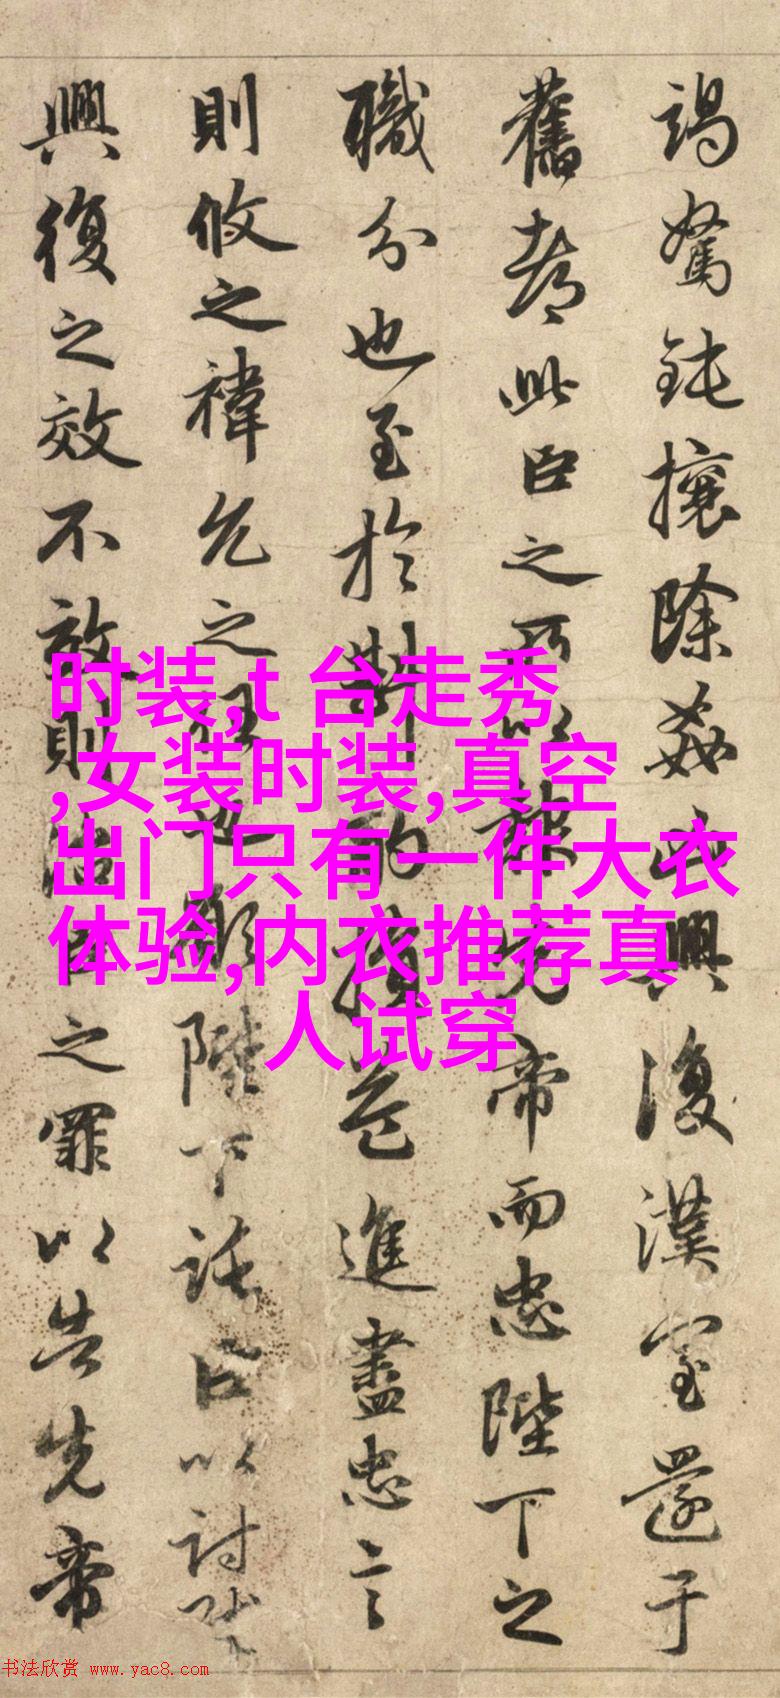 竭駑鈍攘除姦凶興復漢室還于
舊都此臣之所以報先帝而忠陛下之
職分也至於斟酌損益進盡忠言
則攸之禕允之任也願陛下託臣以討賊
興復之效不效則治臣之罪以告先帝
时装,t 台走秀
,女装时装,真空
出门只有一件大衣
体验,内衣推荐真
人试穿
书法欣赏 www.yac8.com